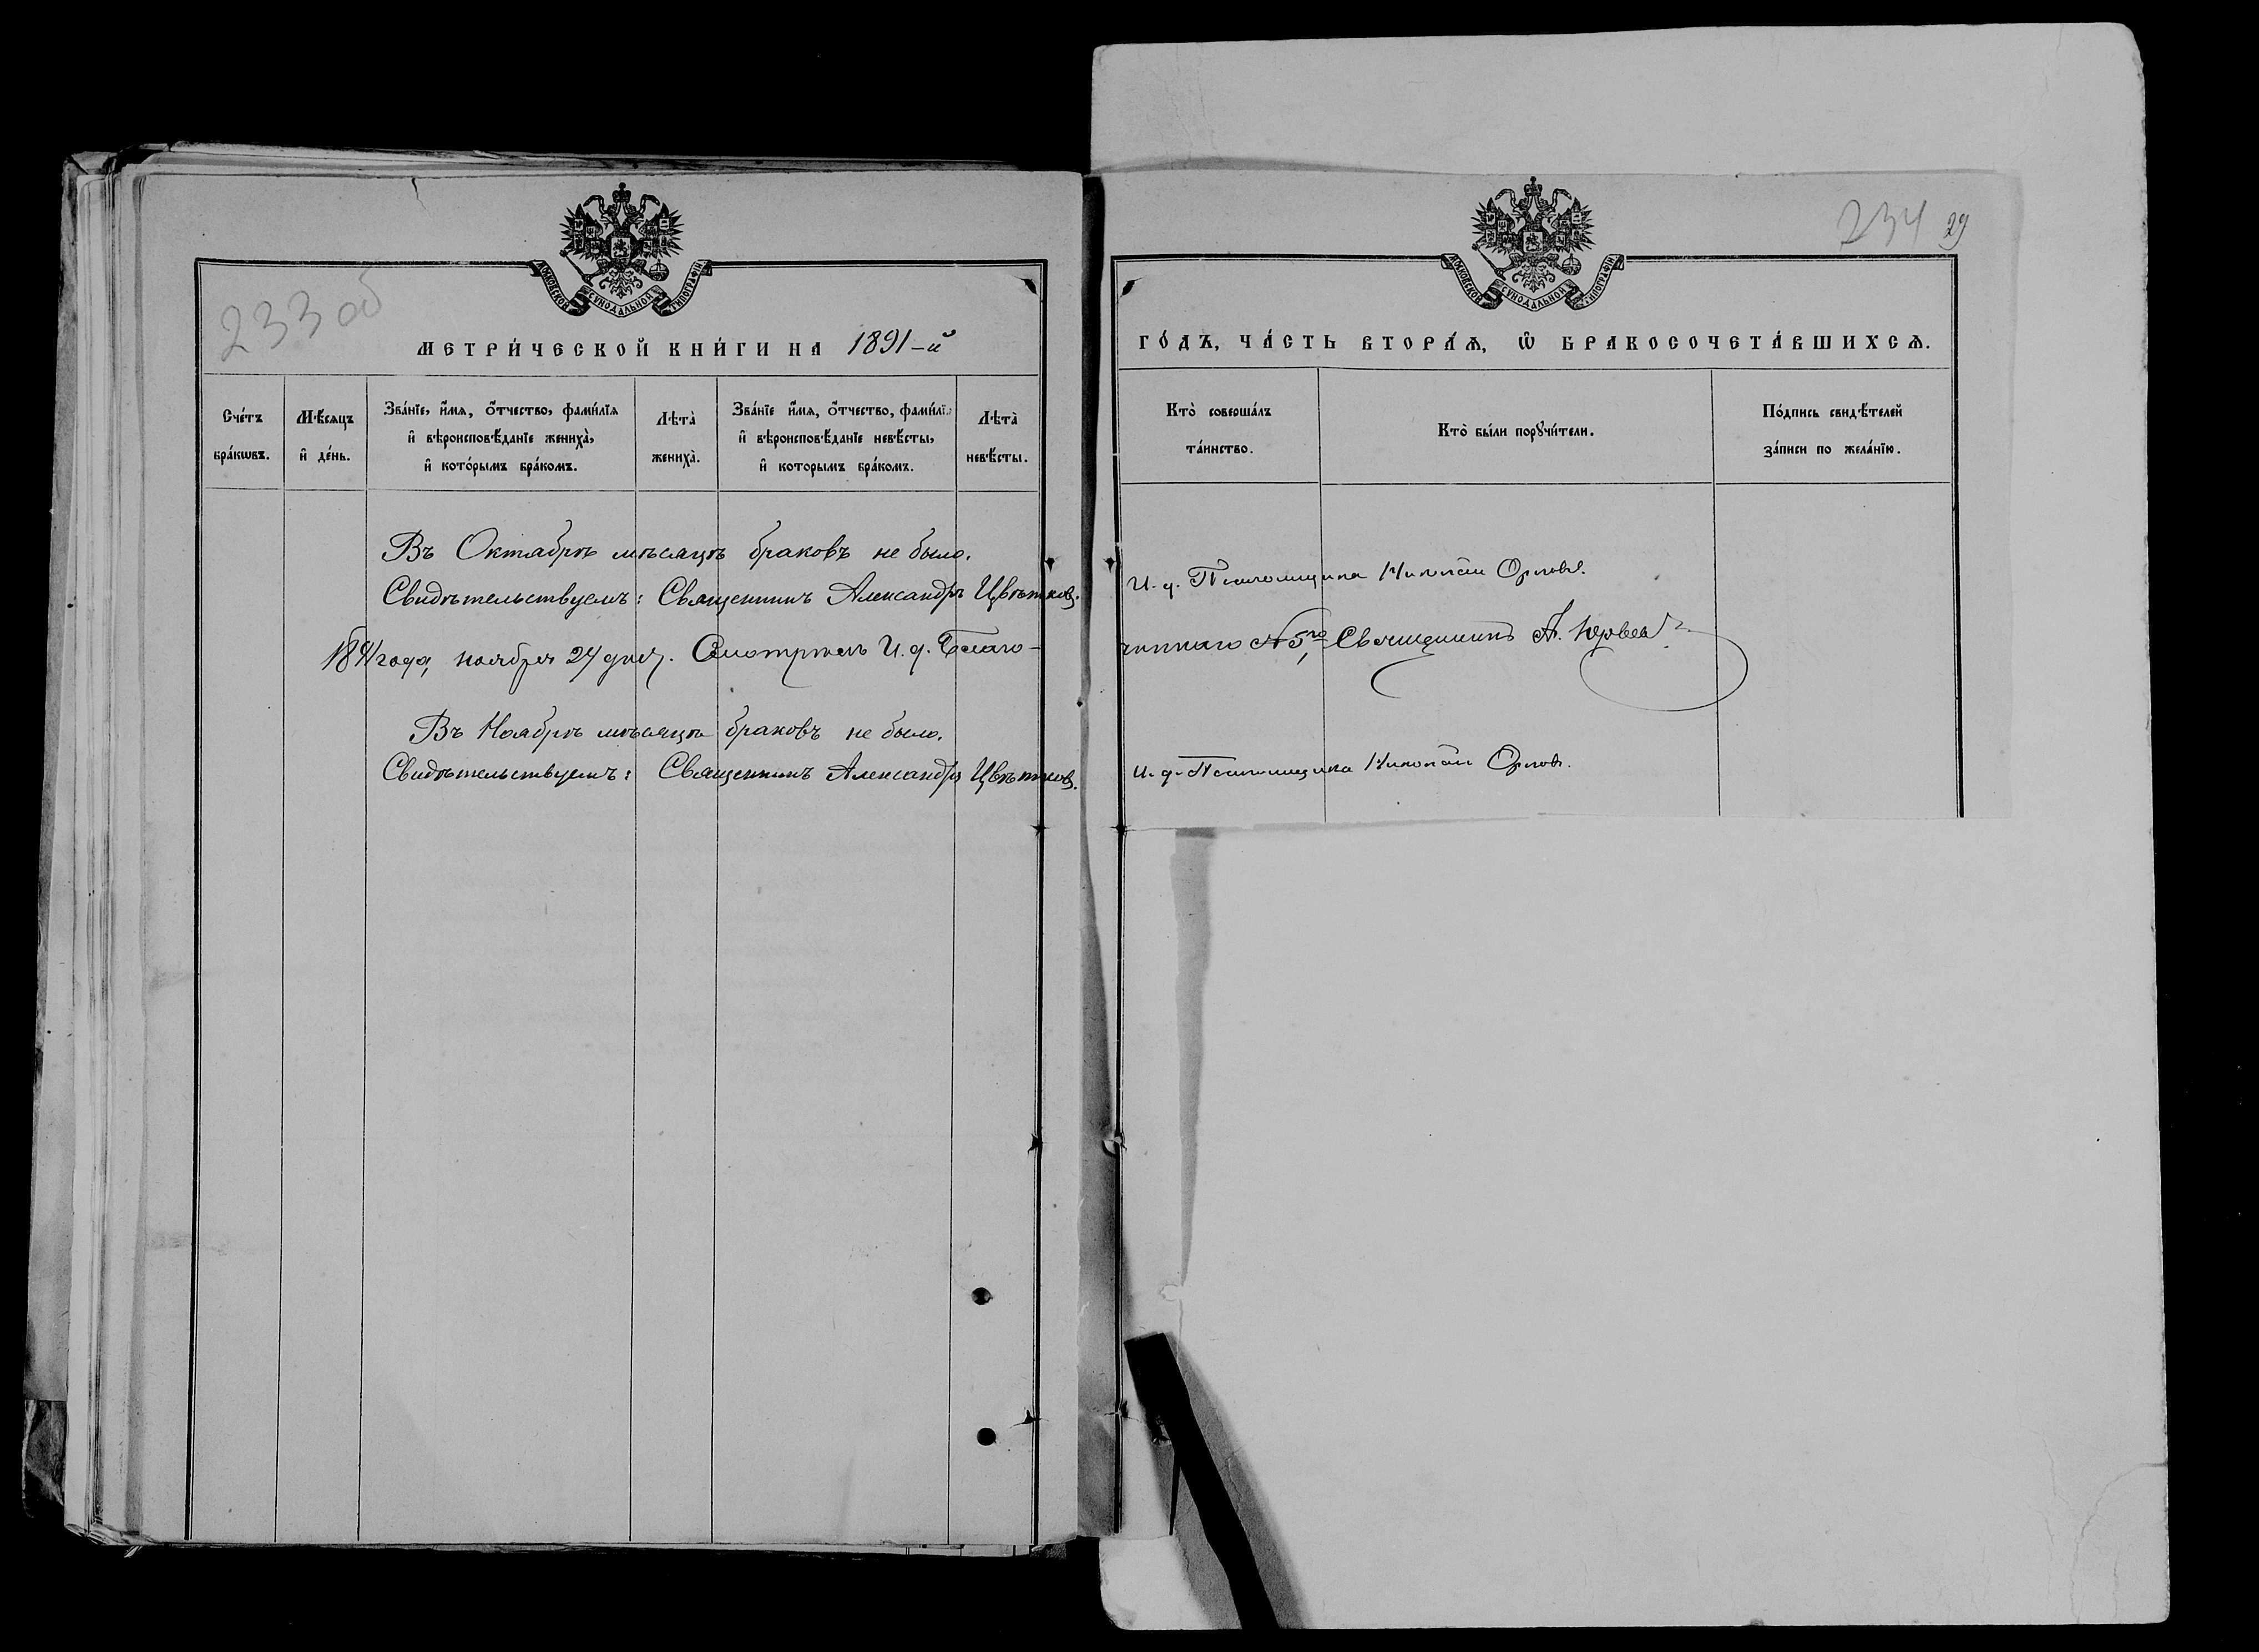 МОСКОВСКОЙ СѴНОДАЛЬНОЙ ТИПОГРАФІИ
233 об
МЕТРИ́ЧЕСКОЙ КНИ́ГИ НА 1891-й
Сче́тъ бра́кωвъ.
Мѣ́сяцъ и҆ де́нь.
Зва́нїе, и҆́мѧ, ѻ҆́тчество, фами́лїѧ
и҆ вѣроисповѣ́данїе жениха̀,
и҆ кото́рымъ бра́комъ.
Лѣта̀ жениха̀.
Зва́нїе и҆́мѧ, ѻ҆́тчество, фами́лїѧ
и҆ вѣроисповѣ́данїе невѣ́сты,
и҆ которымъ бра́комъ.
Лѣта̀ невѣ́сты.
Въ Октябрѣ мѣсяцѣ браковъ не было.
Свидѣтельствуемъ: Священникъ Александръ Цвѣтков.
1891 года, ноября 24 дня. Смотрѣлъ И. д. Благо-
Въ Ноябрѣ мѣсяцѣ браковъ не было.
Свидѣтельствуемъ: Священникъ Александръ Цвѣтков.
МОСКОВСКОЙ СѴНОДАЛЬНОЙ ТИПОГРАФІИ
234 29
ГО́ДЪ, ЧА́СТЬ ВТОРА́Ѧ, Ѡ҆ БРАКОСОЧЕТА́ВШИХСѦ.
Кто̀ соверша́лъ
та́инство.
Кто̀ бы́ли порꙋчи́тели.
По́дпись свидѣ́телей
за́писи по жела́нїю.
И. д. Псаломщика Николай Орловъ.
чиннаго №5го, Священникъ А.
И. д. Псаломщика Николай Орловъ.